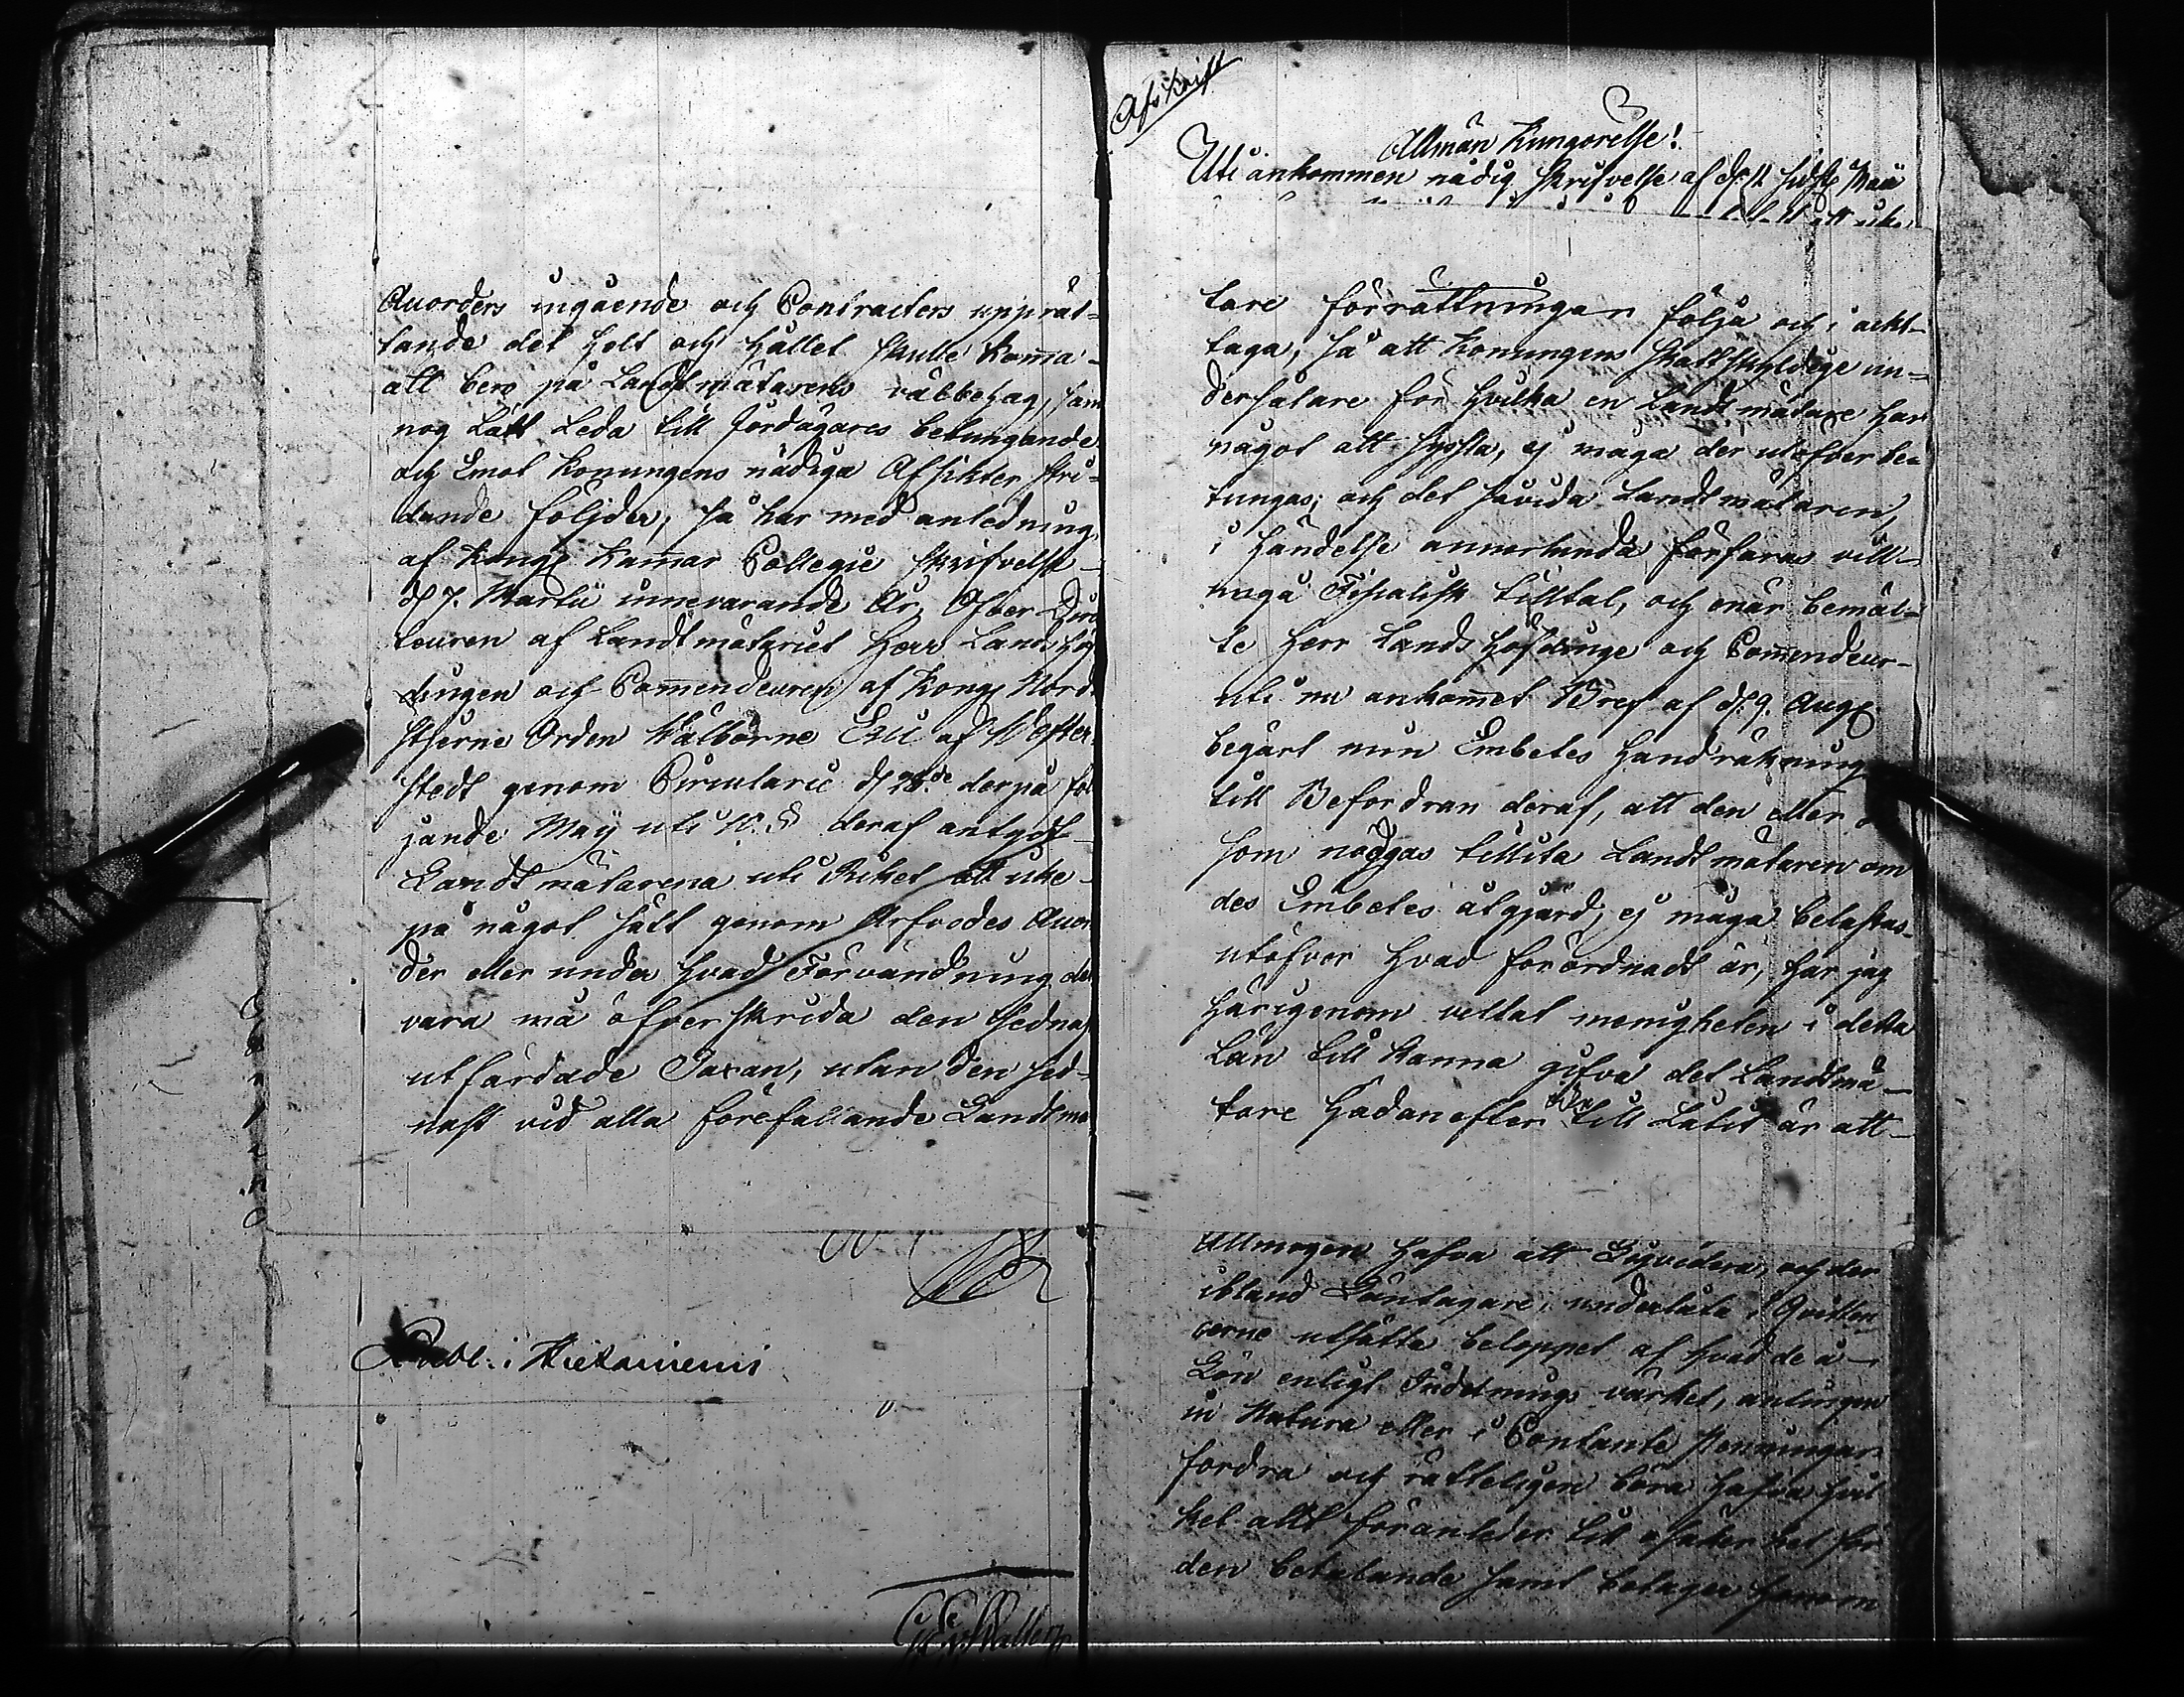 Auorders ingående och Contracters upprät=
tande det Helt och Hållet skulle komma
att bero på Landtmätarens välbehag, sam
nog Lätt Leda till Jordägares betungande
och Emot Konungens nådiga Afsikter stri=
dande följder; så har med anledning
af Kongl Kamar Collegii skrifvelse
d 7. Martii innevarande År, Öfver Direc
teuren af Landtmäteriet Herr Landshöf
dingen och Commendeuren af Kongl Nord
stjerne Orden Välborne Eric af Wetter
stedt genom Circulaire d 28de derpå föl
jande Maÿ uti 10. § deraf antydt
Landtmätarena uti Riket att icke
på något sätt genom Arfvodes Auor
der eller under hvad Förvändning det
vara må öfverskrida den sednast
utfärdade Taxan, utan den sed=
nast vid alla förefallande Landtmä
Publ: i Hietaniemi
Afskrift
Allmän Kungörelse!
Uti ankommen nådig skrifvelse af d. 11 sidstl Maii
tare förrättningar följa och i akt
taga, så att Konungens skattskyldige un=
dersåtare för hvilka en Landtmätare har
något att syssla, ej måga der utöfver be
tungas; och det såvida Landtmätaren,
i händelse annorlunda förfaras vill
undgå Fiscalisk tilltal, och enär bemäl=
te Herr Lands Höfdinge och Commendeur
uti nu ankommet Bref af d. 9. Aug
begärt min Embetes Handräkning
till Befordran deraf, att den eller
som nödgas tillita Landtmätaren om
des Embetes åtgjärd, ej måga belastas
utöfver hvad förordnadt är, har jag
härigenom vellat menigheten i detta
Län till känna gifva det Landtmä
tare hädanefter icke till Låtit är att
Allmogen hafva att Liqvidera, och der
ibland Löntagare, underlåta i Qvitten
cerne utsätta beloppet af hvad de i
Lön enligt Indelnings värket, antingen
in Natura eller i Contante Penningar
fordra och rätteligen böra hafva hvil
ket allt föranleder till osäkerhet för
den betalande samt betager honom